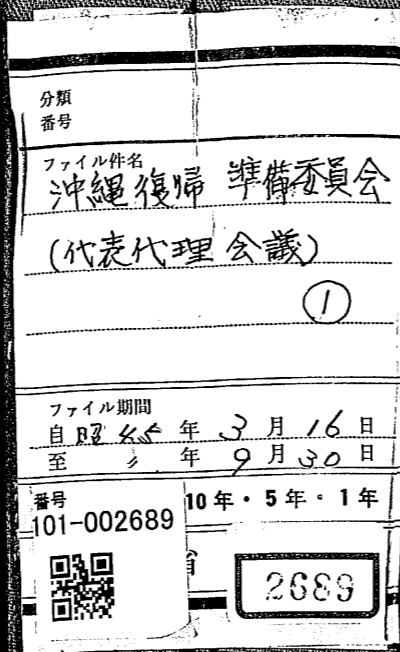 分類
番号
ファイル件名
沖縄復帰 準備委員会
(代表代理会議)
①
ファイル期間
自 昭45年 3月16日
至 〃年 9月30日
10年・5年・1年
番号
101-002689
省
2689